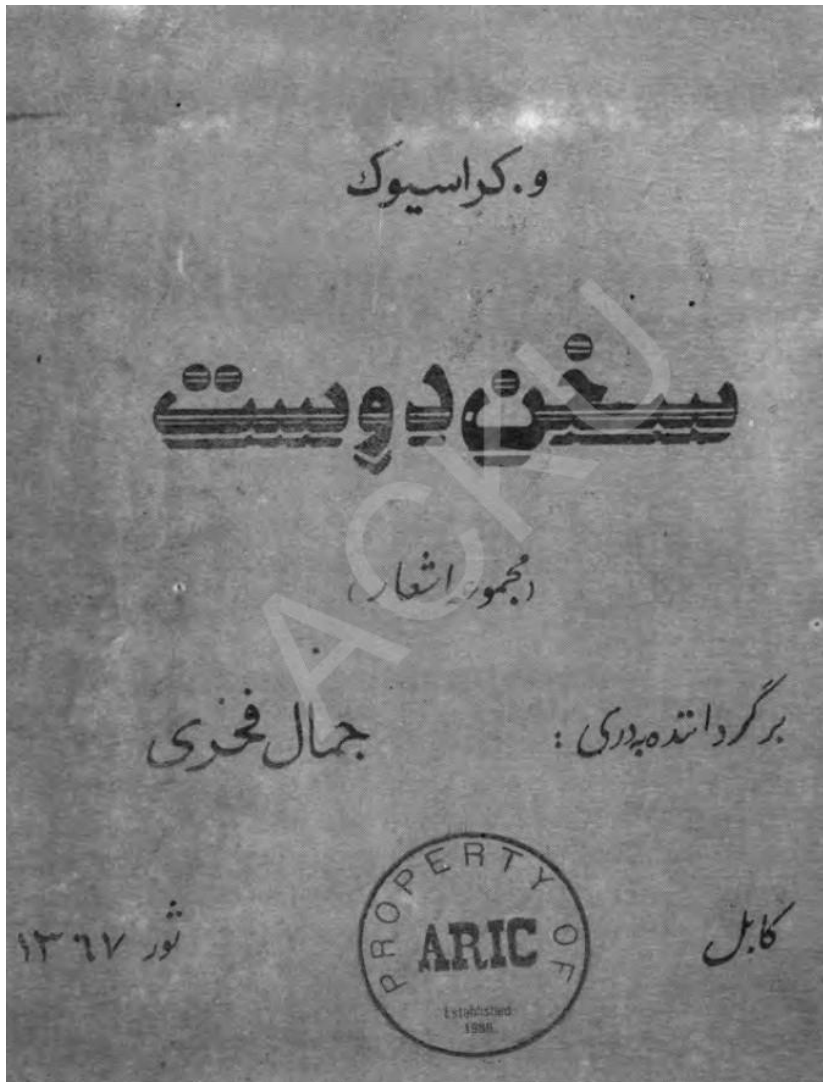 و. کراسیوک
سخن دوست
(مجموعه اشعار)
برگرداننده بدری : جمال فخری
کابل ثور ۱۳۶۷
PROPERTY OF
ARIC
Established
1988
ACKU